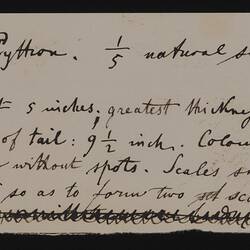 Python. 1/5 natural s
5 inches, greatest thickne
of tail: 9 1/2 inch. Colou
without spots. Scales s
so as to form two